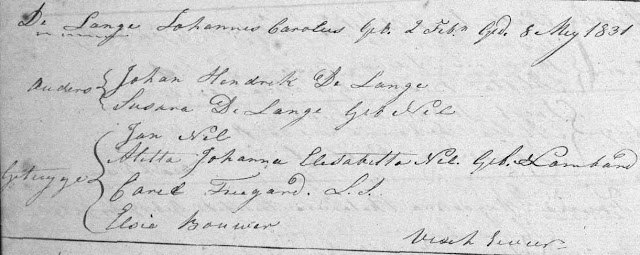 De Lange Johannes Carolus Geb. 2 Febr. Ged. 8 Mey 1831
Ouders
Johan Hendrik De Lange
Susara De Lange Geb Nel
Getuyge
Jan Nel
Aletta Johanna Elisabetta Nel. Geb. Lombard
Carel Tregard. L.S.
Elsie Bouwer
Visch Rivier